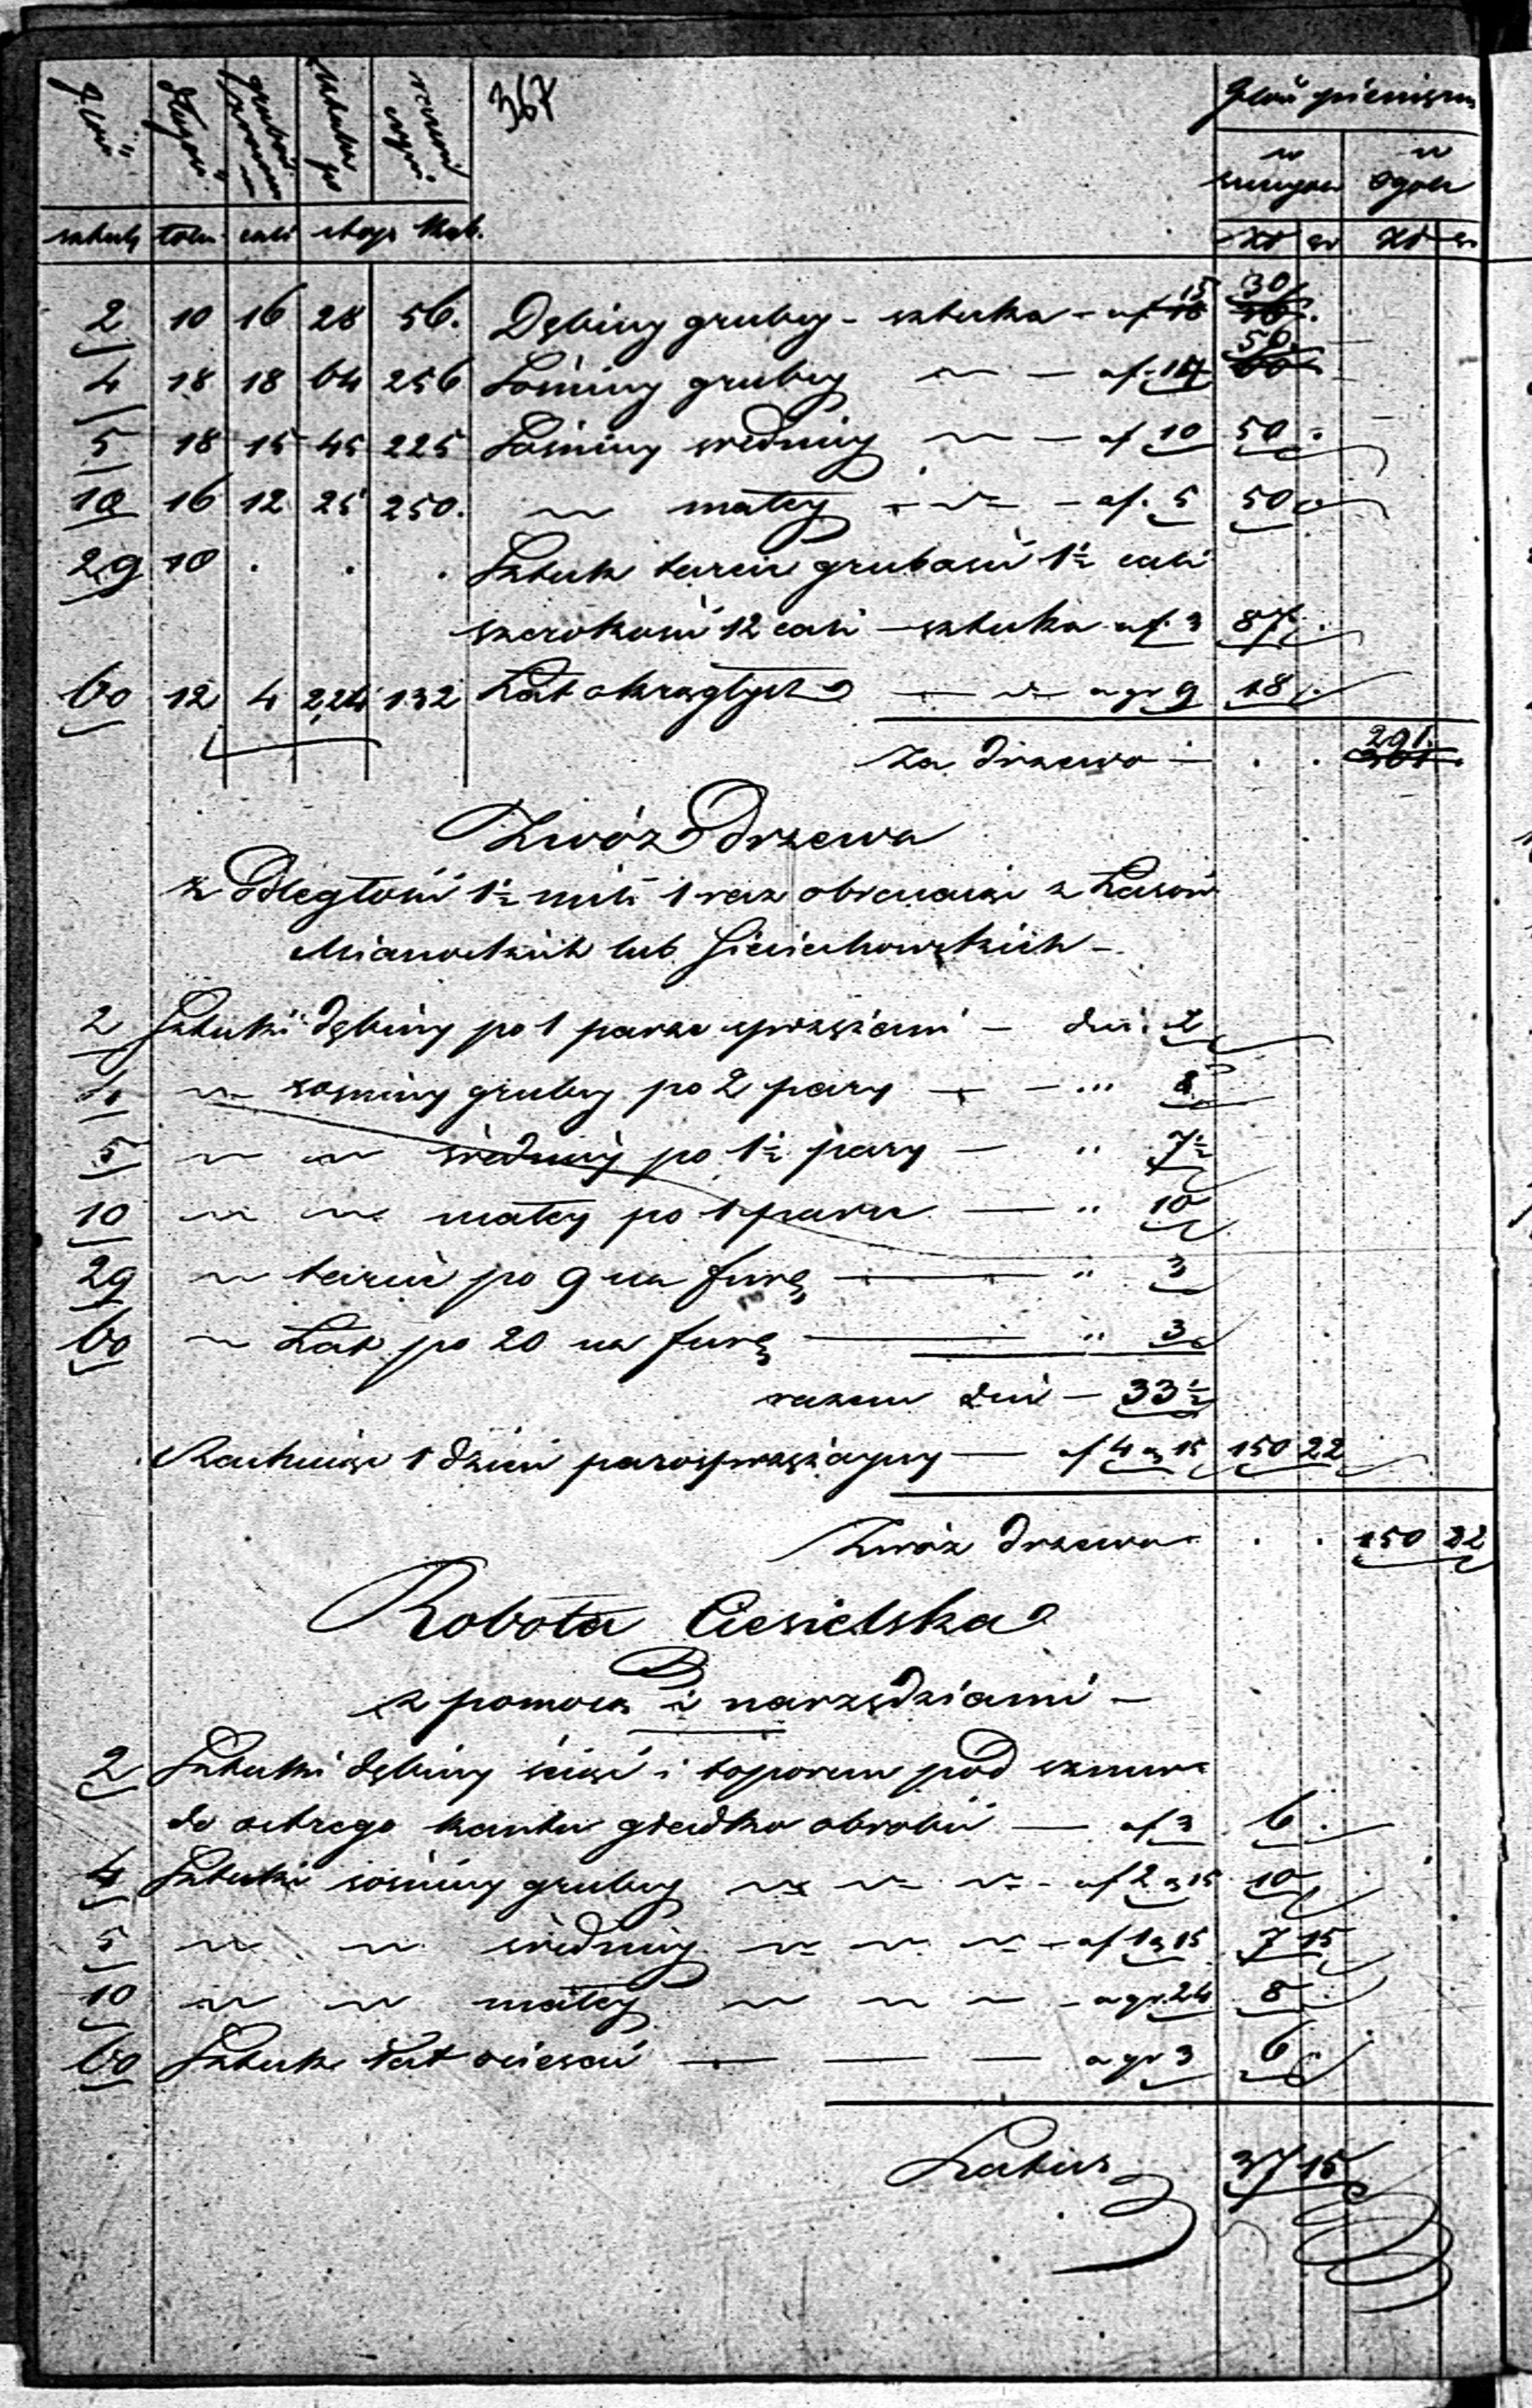 367
Ilość długość grubość sztuka po razem Ilość pieniężna
w szczególe w ogóle
sztuk łokci cali stóp kub. zł gr zł gr
2 10 16 28 56. Dębiny grubey - sztuka - af 15 30
4 18 18 64 256 Sośniny grubey — af. 14 56.
5 18 15 45 225 Sośniny średniey — af 10 50
10 16 12 25 250. małey — af. 5 50
29 10 . . . Sztuk tarcic grubości 1½ cali
szerokości 12 cali — sztuka af. 3 87.
60 12 4 2,24 132 Łat okrągłych — a gr 9 18.
Za drzewo — . . 291.
Zwóz Drzewa
z Odległości 1½ mili 1 raz obracaiąc z Lasów
lub
2 Sztuki dębiny po 1 parze sprzężaiu — dni 2
4 sosniny grubey po 2 pary — " 8
5 średniey po 1½ pary — " 7½
10 małey po 1 parze — " 10
29 tarcic po 9 na furę — " 3
60 Łat po 20 na furę — " 3
razem dni — 33½
Rachuiąc 1 dzień parosprzężayny — af 4 g 15 150 22
Zwóz drzewa . . 150 22
Robota Ciesielska
z pomocą i narzędziami —
2 Sztuki dębiny ściąć i toporem pod sznur
do ostrego kantu gładko obrobić — af 3 6.
4 Sztuki sośniny grubey — af 2 g 15 10
5 średniey — af 1 g 15 7 15
10 małey — a gr. 24 8
60 Sztuk Łat ociesać — a gr 3 6
Latus 37 15